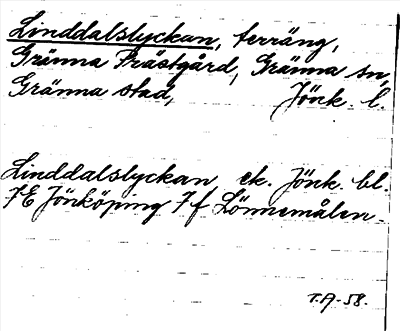 Linddalslyckan, terräng,
Gränna Prästgård, Gränna sn,
Gränna stad, Jönk. l.
Linddalslyckan ek. Jönk. bl.
7E Jönköping 7f Lönnemålen.
T.A-58.